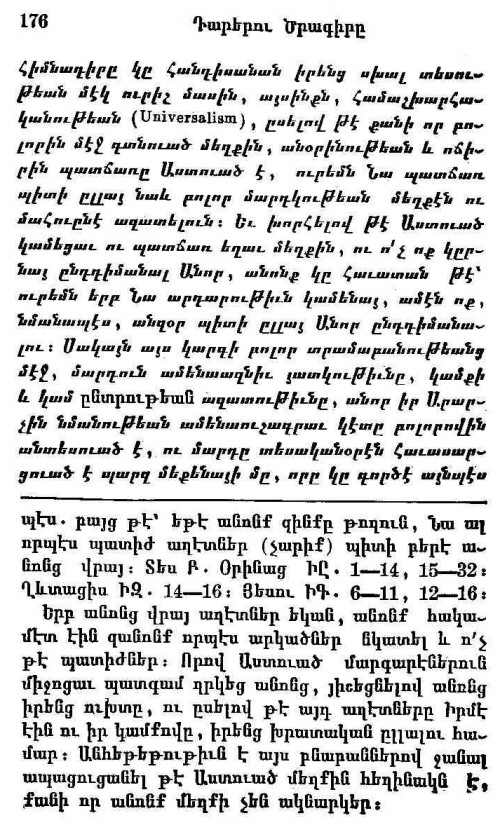 176
Դարերու Ծրագիրը
հիմնադիրը կը հանդիսանան իրենց սխալ տեսու-
թեան մէկ ուրիշ մասին, այսինքն, համաշխարհա-
կանութեան (Universalism), ըսելով թէ քանի որ բո-
լորին մէջ գտնուած մեղքին, անօրինութեան և ոճի-
րին պատճառը Աստուած է, ուրեմն Նա պատճառ
պիտի ըլլայ նաև բոլոր մարդկութեան մեղքէն ու
մահուընէ ազատելուն։ Եւ խորհելով թէ Աստուած
կամեցաւ ու պատճառ եղաւ մեղքին, ու ո՛չ ոք կըր-
նայ ընդդիմանալ Անոր, անոնք կը հաւատան թէ՝
ուրեմն երբ Նա արդարութիւն կամենայ, ամէն ոք,
նմանապէս, անզօր պիտի ըլլայ Անոր ընդդիմանա-
լու։ Սակայն այս կարգի բոլոր տրամաբանութեանց
մէջ, մարդուն ամենաազնիւ յատկութիւնը, կամքի
և կամ ընտրութեան ազատութիւնը, անոր իր Արար-
չին նմանութեան ամենաուշագրաւ կէտը բոլորովին
անտեսուած է, ու մարդը տեսականօրէն հաւասար-
ցուած է պարզ մեքենայի մը, որը կը գործէ այնպէս
պէս. բայց թէ՝ եթէ անոնք զինքը թողուն, Նա ալ
որպէս պատիժ աղէտներ (չարիք) պիտի բերէ ա-
նոնց վրայ։ Տես Բ. Օրինաց ԻԸ. 1—14, 15—32։
Ղևտացիս ԻԶ. 14—16։ Յեսու ԻԳ. 6—11, 12—16։
Երբ անոնց վրայ աղէտներ եկան, անոնք հակա-
մէտ էին զանոնք որպէս արկածներ նկատել և ո՛չ
թէ պատիժներ։ Որով Աստուած մարգարէներուն
միջոցաւ պատգամ ղրկեց անոնց, յիշեցնելով անոնց
իրենց ուխտը, ու ըսելով թէ այդ աղէտները Իրմէ
էին ու իր կամքովը, իրենց խրատական ըլլալու հա-
մար։ Անհեթեթութիւն է այս բնարաններով ջանալ
ապացուցանել թէ Աստուած մեղքին հեղինակն է,
քանի որ անոնք մեղքի չեն ակնարկեր։